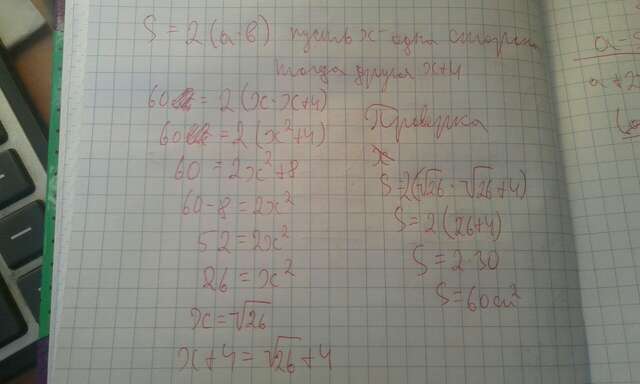 S = 2(a·b) пусть x - одна сторона
тогда другая x+4
60 = 2(x·x+4)
60 = 2(x²+4)
60 = 2x²+8
60-8=2x²
52=2x²
26=x²
x=√26
x+4=√26+4
Проверка
S=2(√26·√26+4)
S=2(26+4)
S=2·30
S=60см²
a